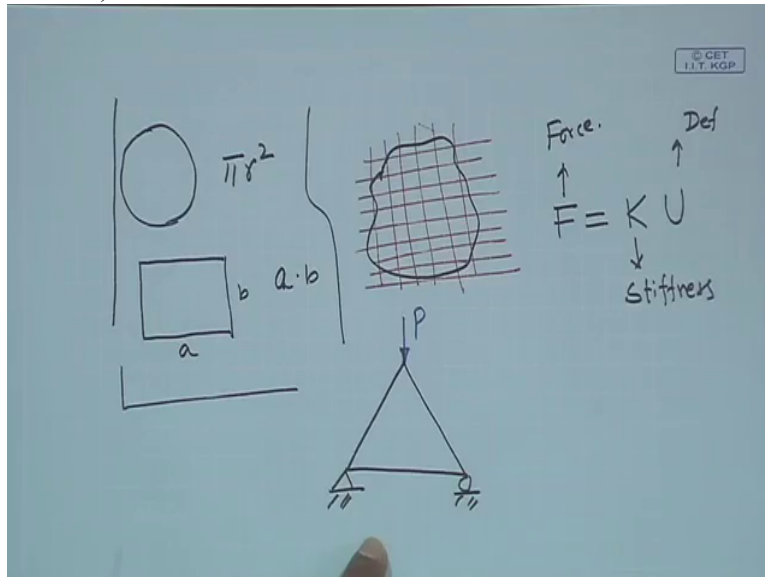 © CET
I.I.T. KGP
πr²
b
a·b
a
Force.
Def
F = K U
Stiffness
P